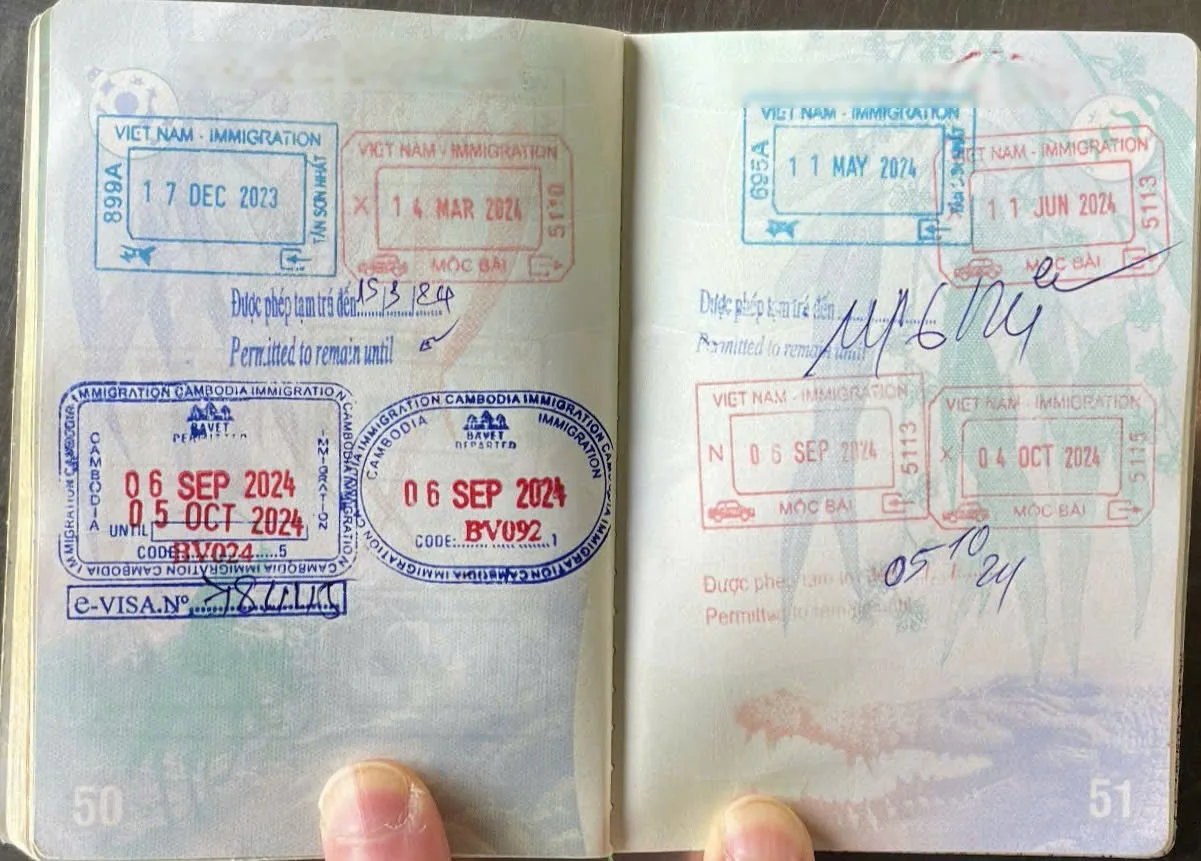 VIET NAM - IMMIGRATION
899A
17 DEC 2023
TÂN SƠN NHẤT
VIET NAM - IMMIGRATION
X 14 MAR 2024
5110
MỘC BÀI
Được phép tạm trú đến 15/3/24
Permitted to remain until
IMMIGRATION CAMBODIA IMMIGRATION
CAMBODIA
BAVET
PERMITTED
06 SEP 2024
UNTIL 05 OCT 2024
CODE: BV024 5
e-VISA.Nº
IMMIGRATION CAMBODIA IMMIGRATION
CAMBODIA IMMIGRATION
BAVET
DEPARTED
06 SEP 2024
CODE: BV092 1
50
VIET NAM - IMMIGRATION
695A
11 MAY 2024
TÂN SƠN NHẤT
VIET NAM - IMMIGRATION
11 JUN 2024
5113
MỘC BÀI
Được phép tạm trú đến
Permitted to remain until
VIET NAM - IMMIGRATION
N 06 SEP 2024
5113
MỘC BÀI
VIET NAM - IMMIGRATION
X 04 OCT 2024
MỘC BÀI
Được phép tạm trú đến 05 10 24
Permitted to remain until
51